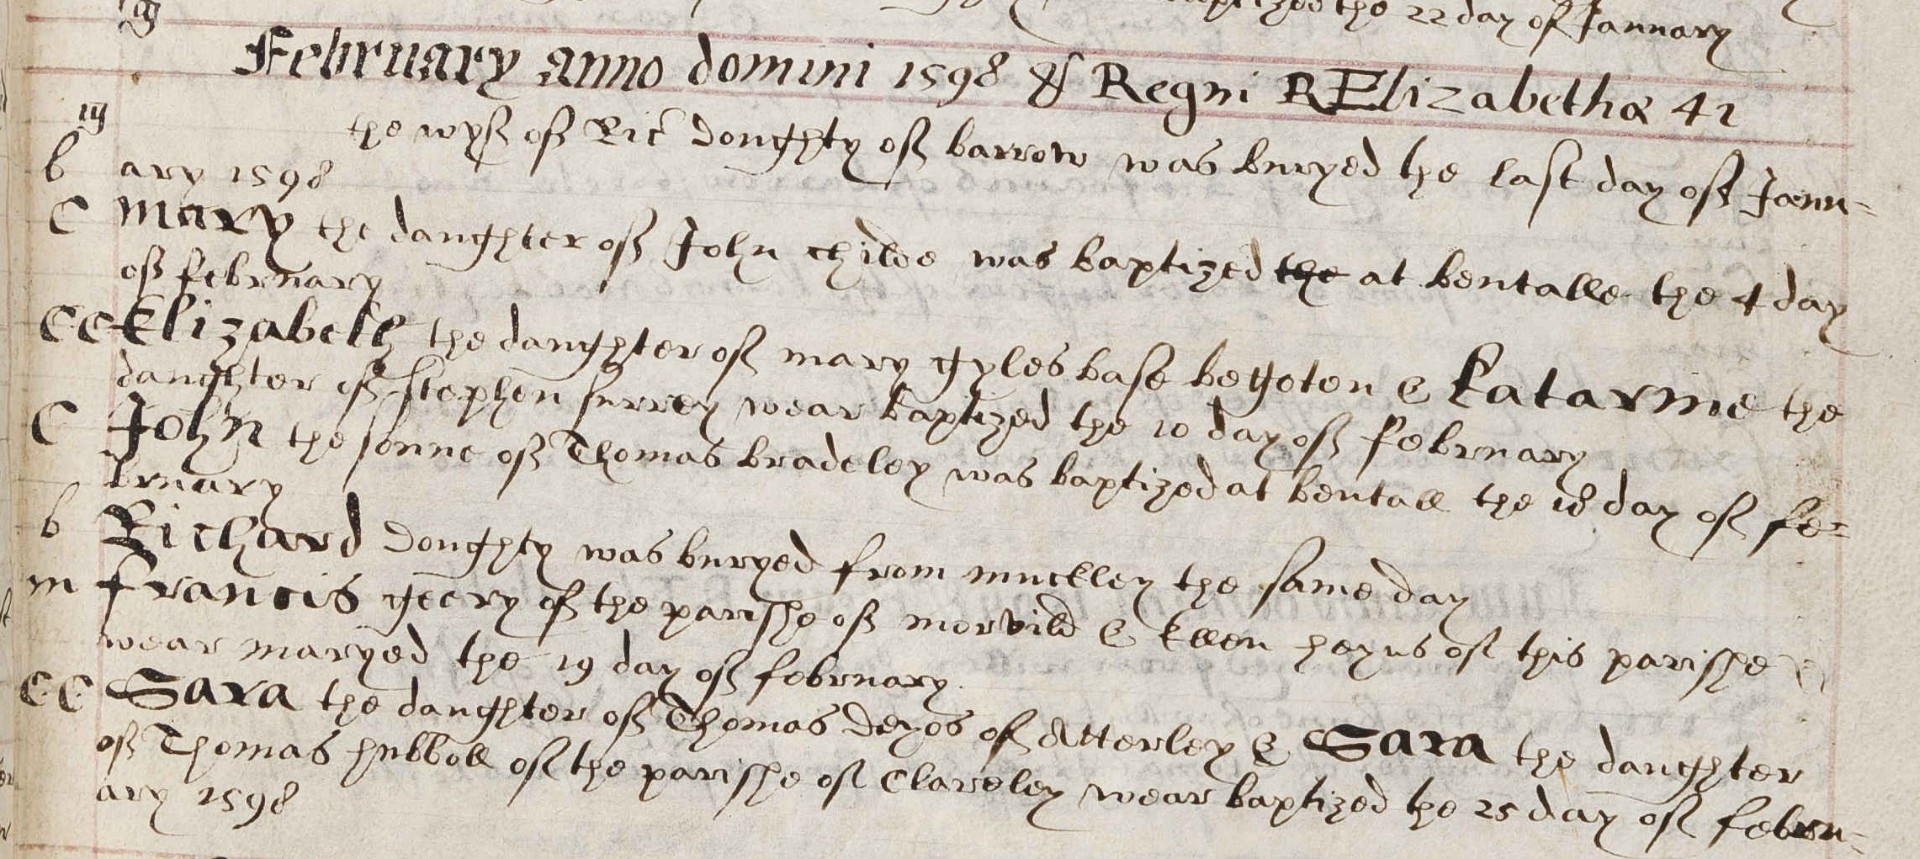 baptized the 22 day of January
February anno domini 1598 & Regni R Elizabethæ 41
19
the wyf of Ric doughty of barrow was buryed the last day of Janu-
b ary 1598
C Mary the daughter of John childe was baptized the at bentalle the 4 day
of february
CC Elizabeth the daughter of mary gyles base begoten & Katarine the
daughter of Stephen furrey wear baptized the 10 day of february
C John the sonne of Thomas bradeley was baptized at bentall the 18 day of fe-
bruary
b Richard doughty was buryed from muckley the same day
m francis geery of the parishe of morvild & Ellen heyns of this parishe
wear maryed the 19 day of february
CC Sara the daughter of Thomas deyos of Atterley & Sara the daughter
of Thomas hubboll of the parishe of Claveley wear baptized the 25 day of febru-
ary 1598